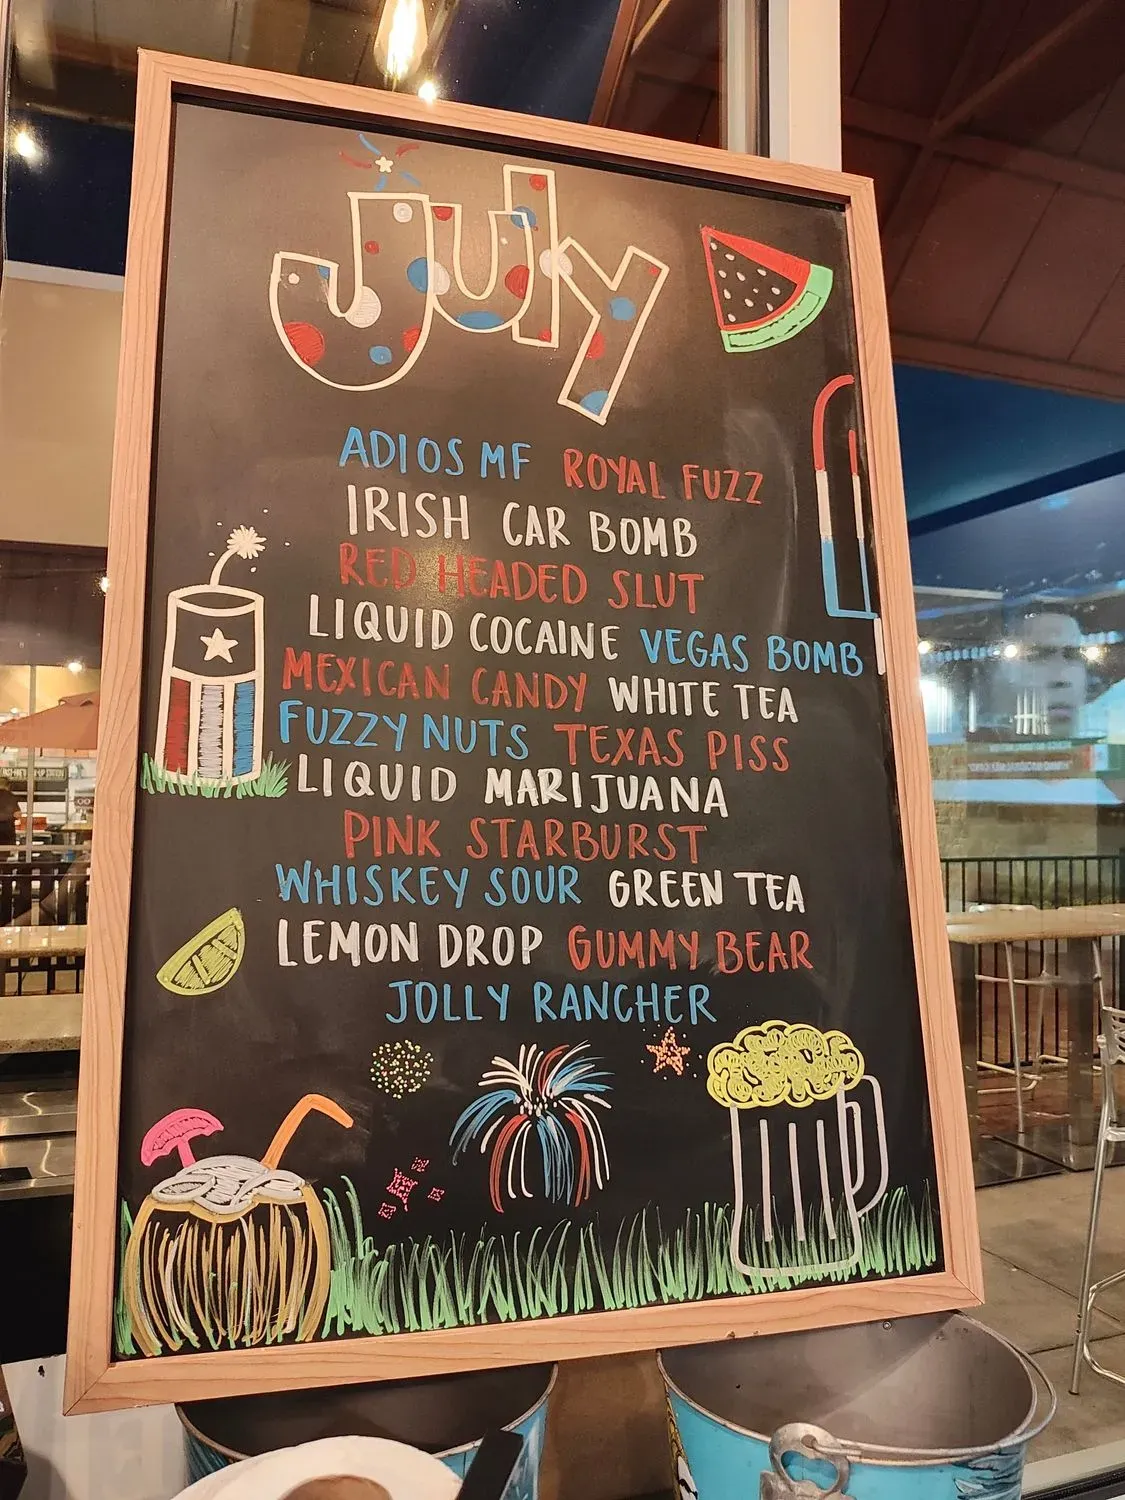 July
ADIOS MF ROYAL FUZZ
IRISH CAR BOMB
RED HEADED SLUT
LIQUID COCAINE VEGAS BOMB
MEXICAN CANDY WHITE TEA
FUZZY NUTS TEXAS PISS
LIQUID MARIJUANA
PINK STARBURST
WHISKEY SOUR GREEN TEA
LEMON DROP GUMMY BEAR
JOLLY RANCHER